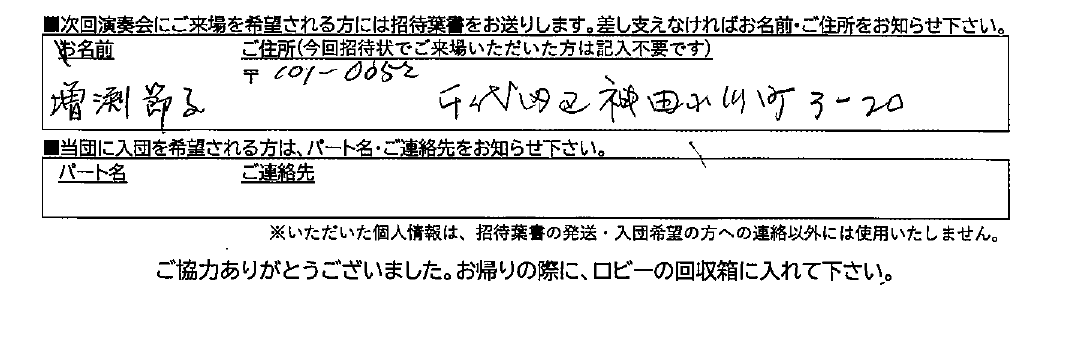 ■次回演奏会にご来場を希望される方には招待葉書をお送りします。差し支えなければお名前・ご住所をお知らせ下さい。
お名前 ご住所(今回招待状でご来場いただいた方は記入不要です)
〒 101-0052
増渕節子 千代田区神田小川町3-20
■当団に入団を希望される方は、パート名・ご連絡先をお知らせ下さい。
パート名 ご連絡先
※いただいた個人情報は、招待葉書の発送・入団希望の方への連絡以外には使用いたしません。
ご協力ありがとうございました。お帰りの際に、ロビーの回収箱に入れて下さい。